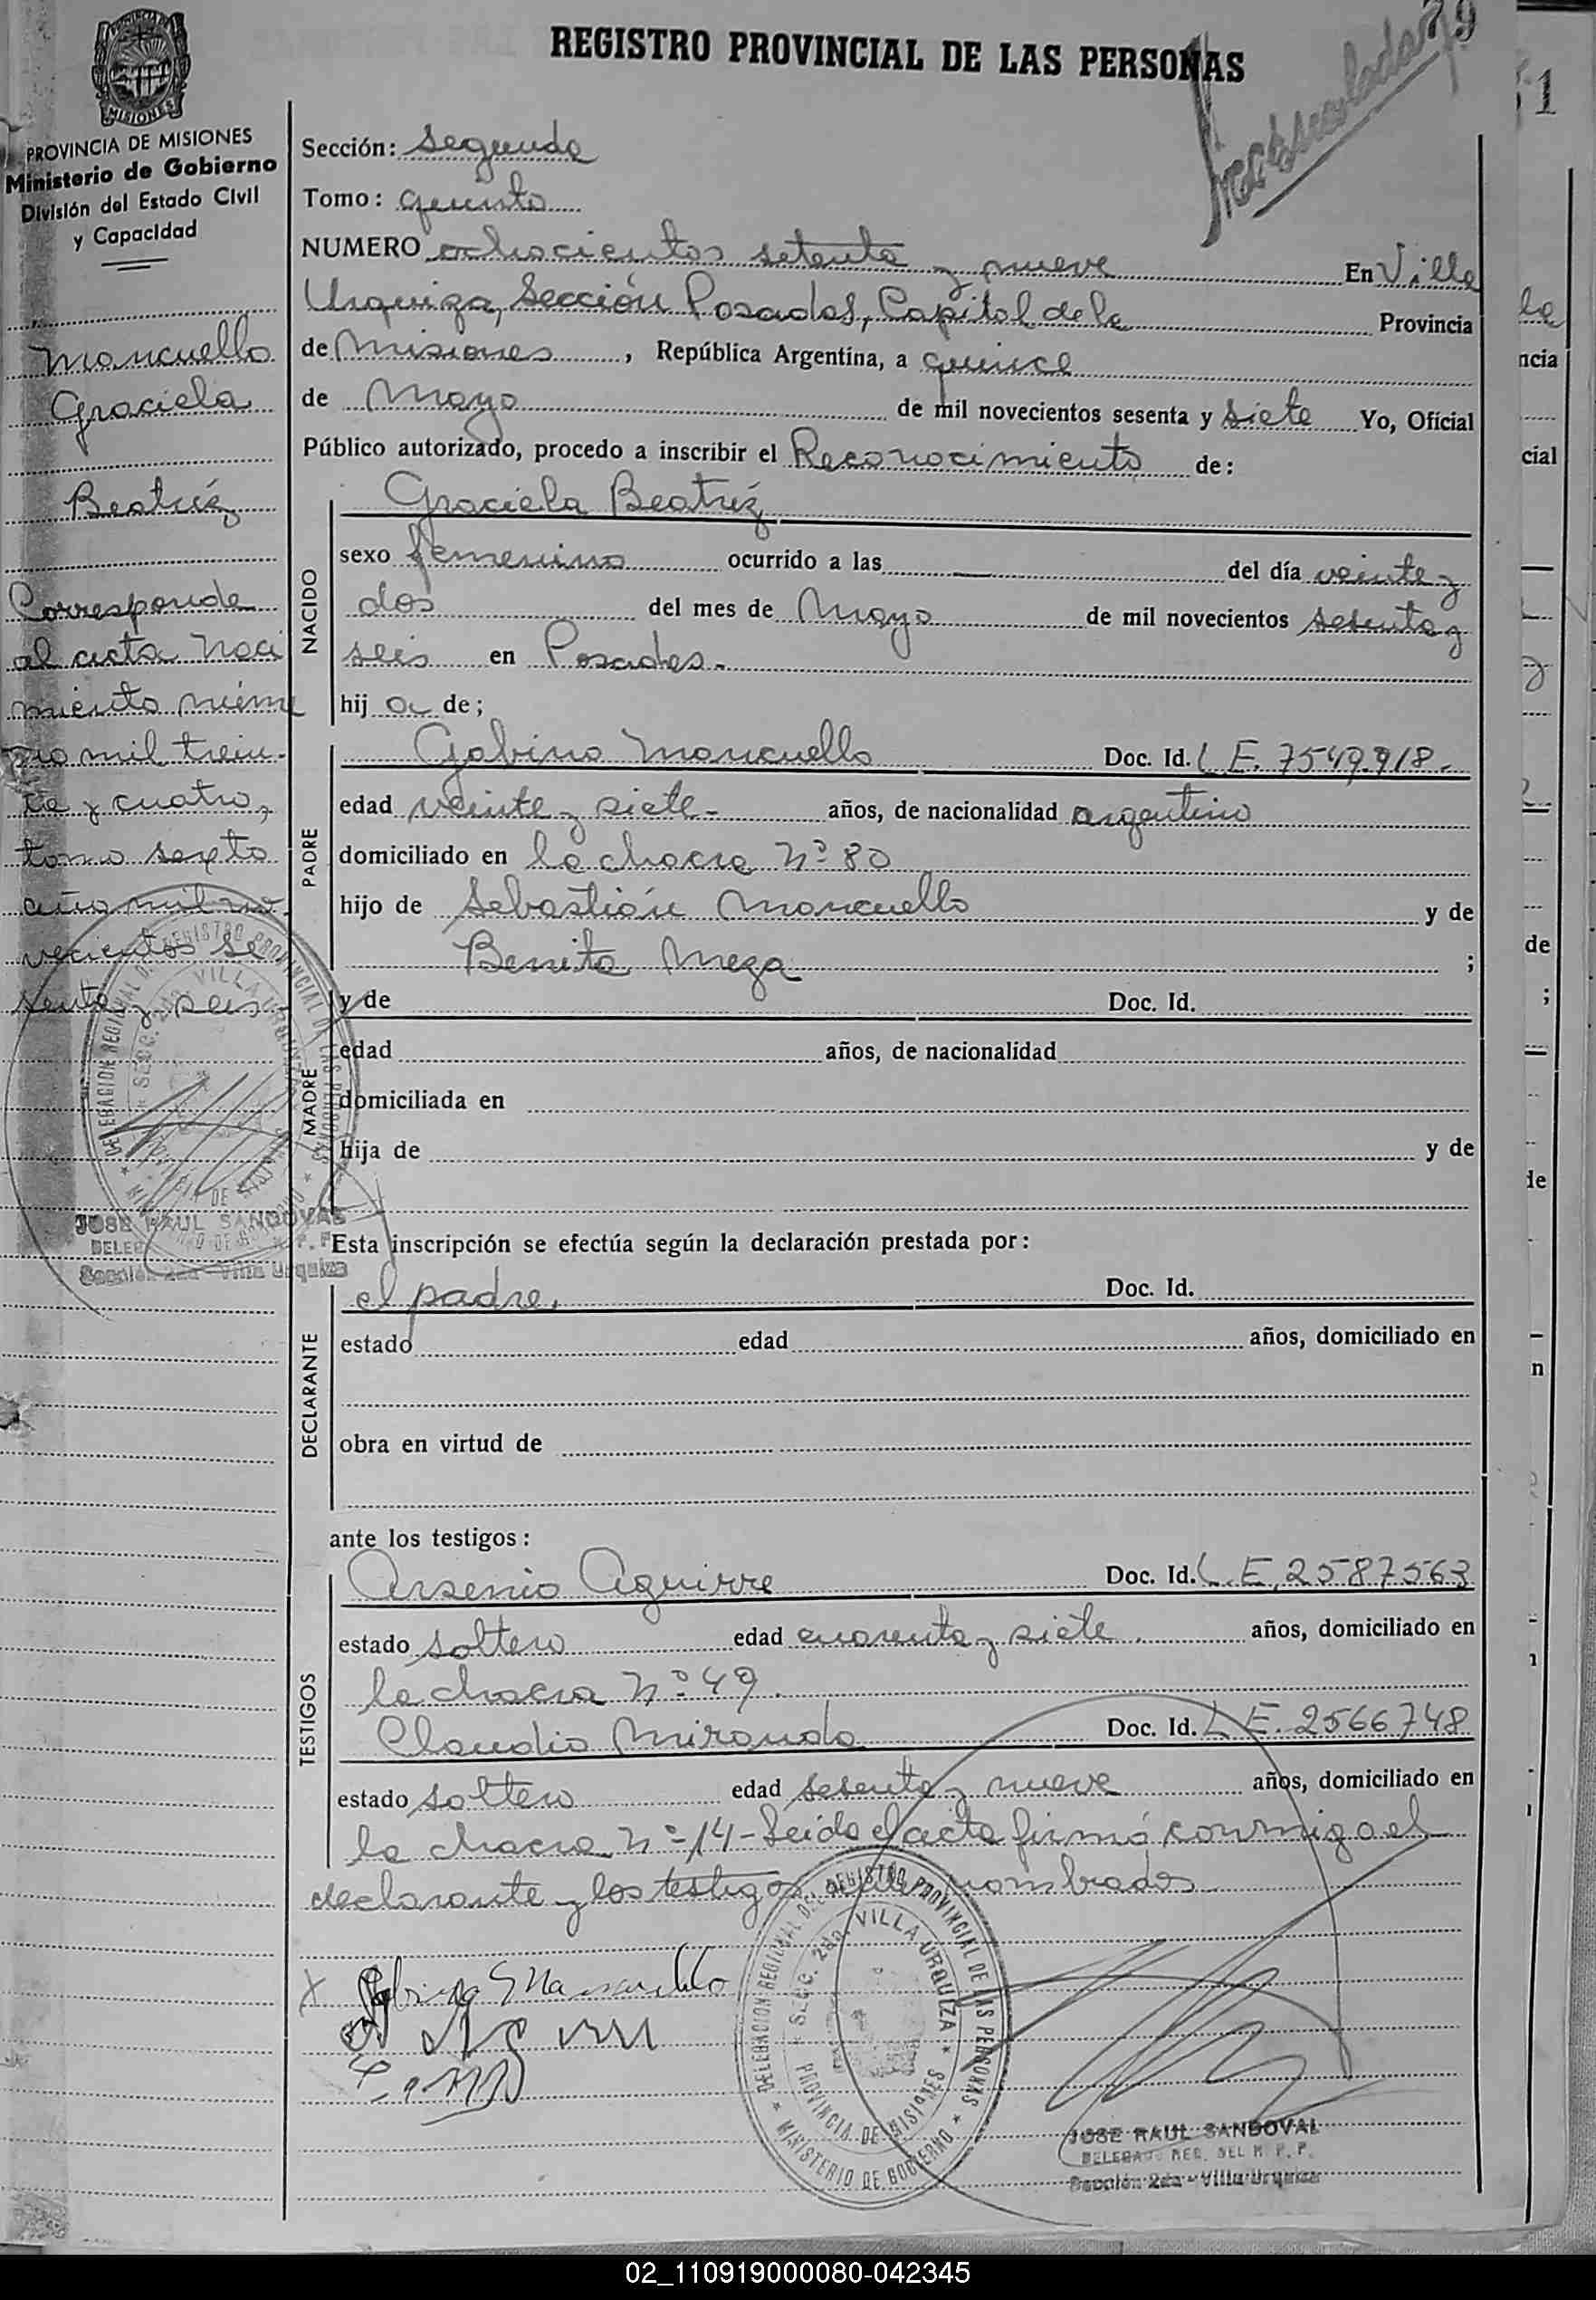 79
REGISTRO PROVINCIAL DE LAS PERSONAS
1
PROVINCIA DE MISIONES
MISIONES
PROVINCIA DE MISIONES
Ministerio de Gobierno
División del Estado Civil
y Capacidad
Moncuello
Graciela
Beatríz
Corresponde
al acta naci
miento núme
ro mil trein-
ta y cuatro,
tomo sexto
año mil no-
vecientos se
senta y seis
JOSE RAUL SANDOVAL
Sección 2da - Villa Urquiza
Sección: Segunda
Tomo: quinto
NUMERO ochocientos setenta y nueve En Villa
Urquiza, Sección Posadas, Capital de la Provincia
de Misiones, República Argentina, a quince
de Mayo de mil novecientos sesenta y siete Yo, Oficial
Público autorizado, procedo a inscribir el Reconocimiento de:
NACIDO
Graciela Beatríz
sexo femenino ocurrido a las — del día veinte y
dos del mes de Mayo de mil novecientos setenta y
seis en Posadas.
hij a de;
PADRE
Gabino Moncuello Doc. Id. L.E. 7549.918.
edad veinte y siete- años, de nacionalidad argentino
domiciliado en la chacra Nº 80
hijo de Sebastián Moncuello y de
Benita Meza ;
MADRE
y de Doc. Id.
edad años, de nacionalidad
domiciliada en
hija de y de
Esta inscripción se efectúa según la declaración prestada por:
DECLARANTE
el padre. Doc. Id.
estado edad años, domiciliado en
obra en virtud de
ante los testigos:
TESTIGOS
Arsenio Aguirre Doc. Id. L.E. 2587563
estado soltero edad cuarenta y siete. años, domiciliado en
la chacra Nº 49.
Claudio Miranda Doc. Id. L.E. 2566748
estado soltero edad sesenta y nueve años, domiciliado en
la chacra Nº 14- Leída el acta firmó conmigo el
declarante y los testigos nombrados
X Gabino Moncuello
DELEGACION REGIONAL DEL REGISTRO PROVINCIAL DE LAS PERSONAS
* MINISTERIO DE GOBIERNO *
* SECC. 2da. VILLA URQUIZA *
PROVINCIA DE MISIONES
JOSE RAUL SANDOVAL
DELEGADO REG. DEL R. P. P.
Sección 2da - Villa Urquiza
02_110919000080-042345